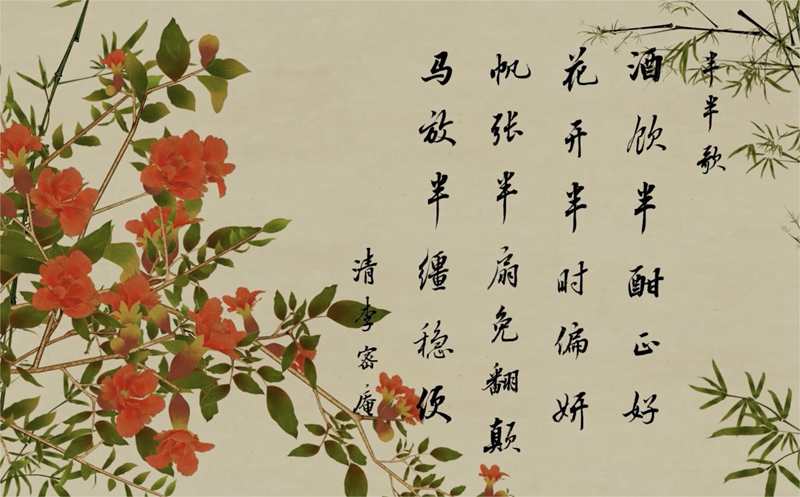 半半歌
酒饮半酣正好
花开半时偏妍
帆张半扇免翻颠
马放半缰稳便
清李密庵